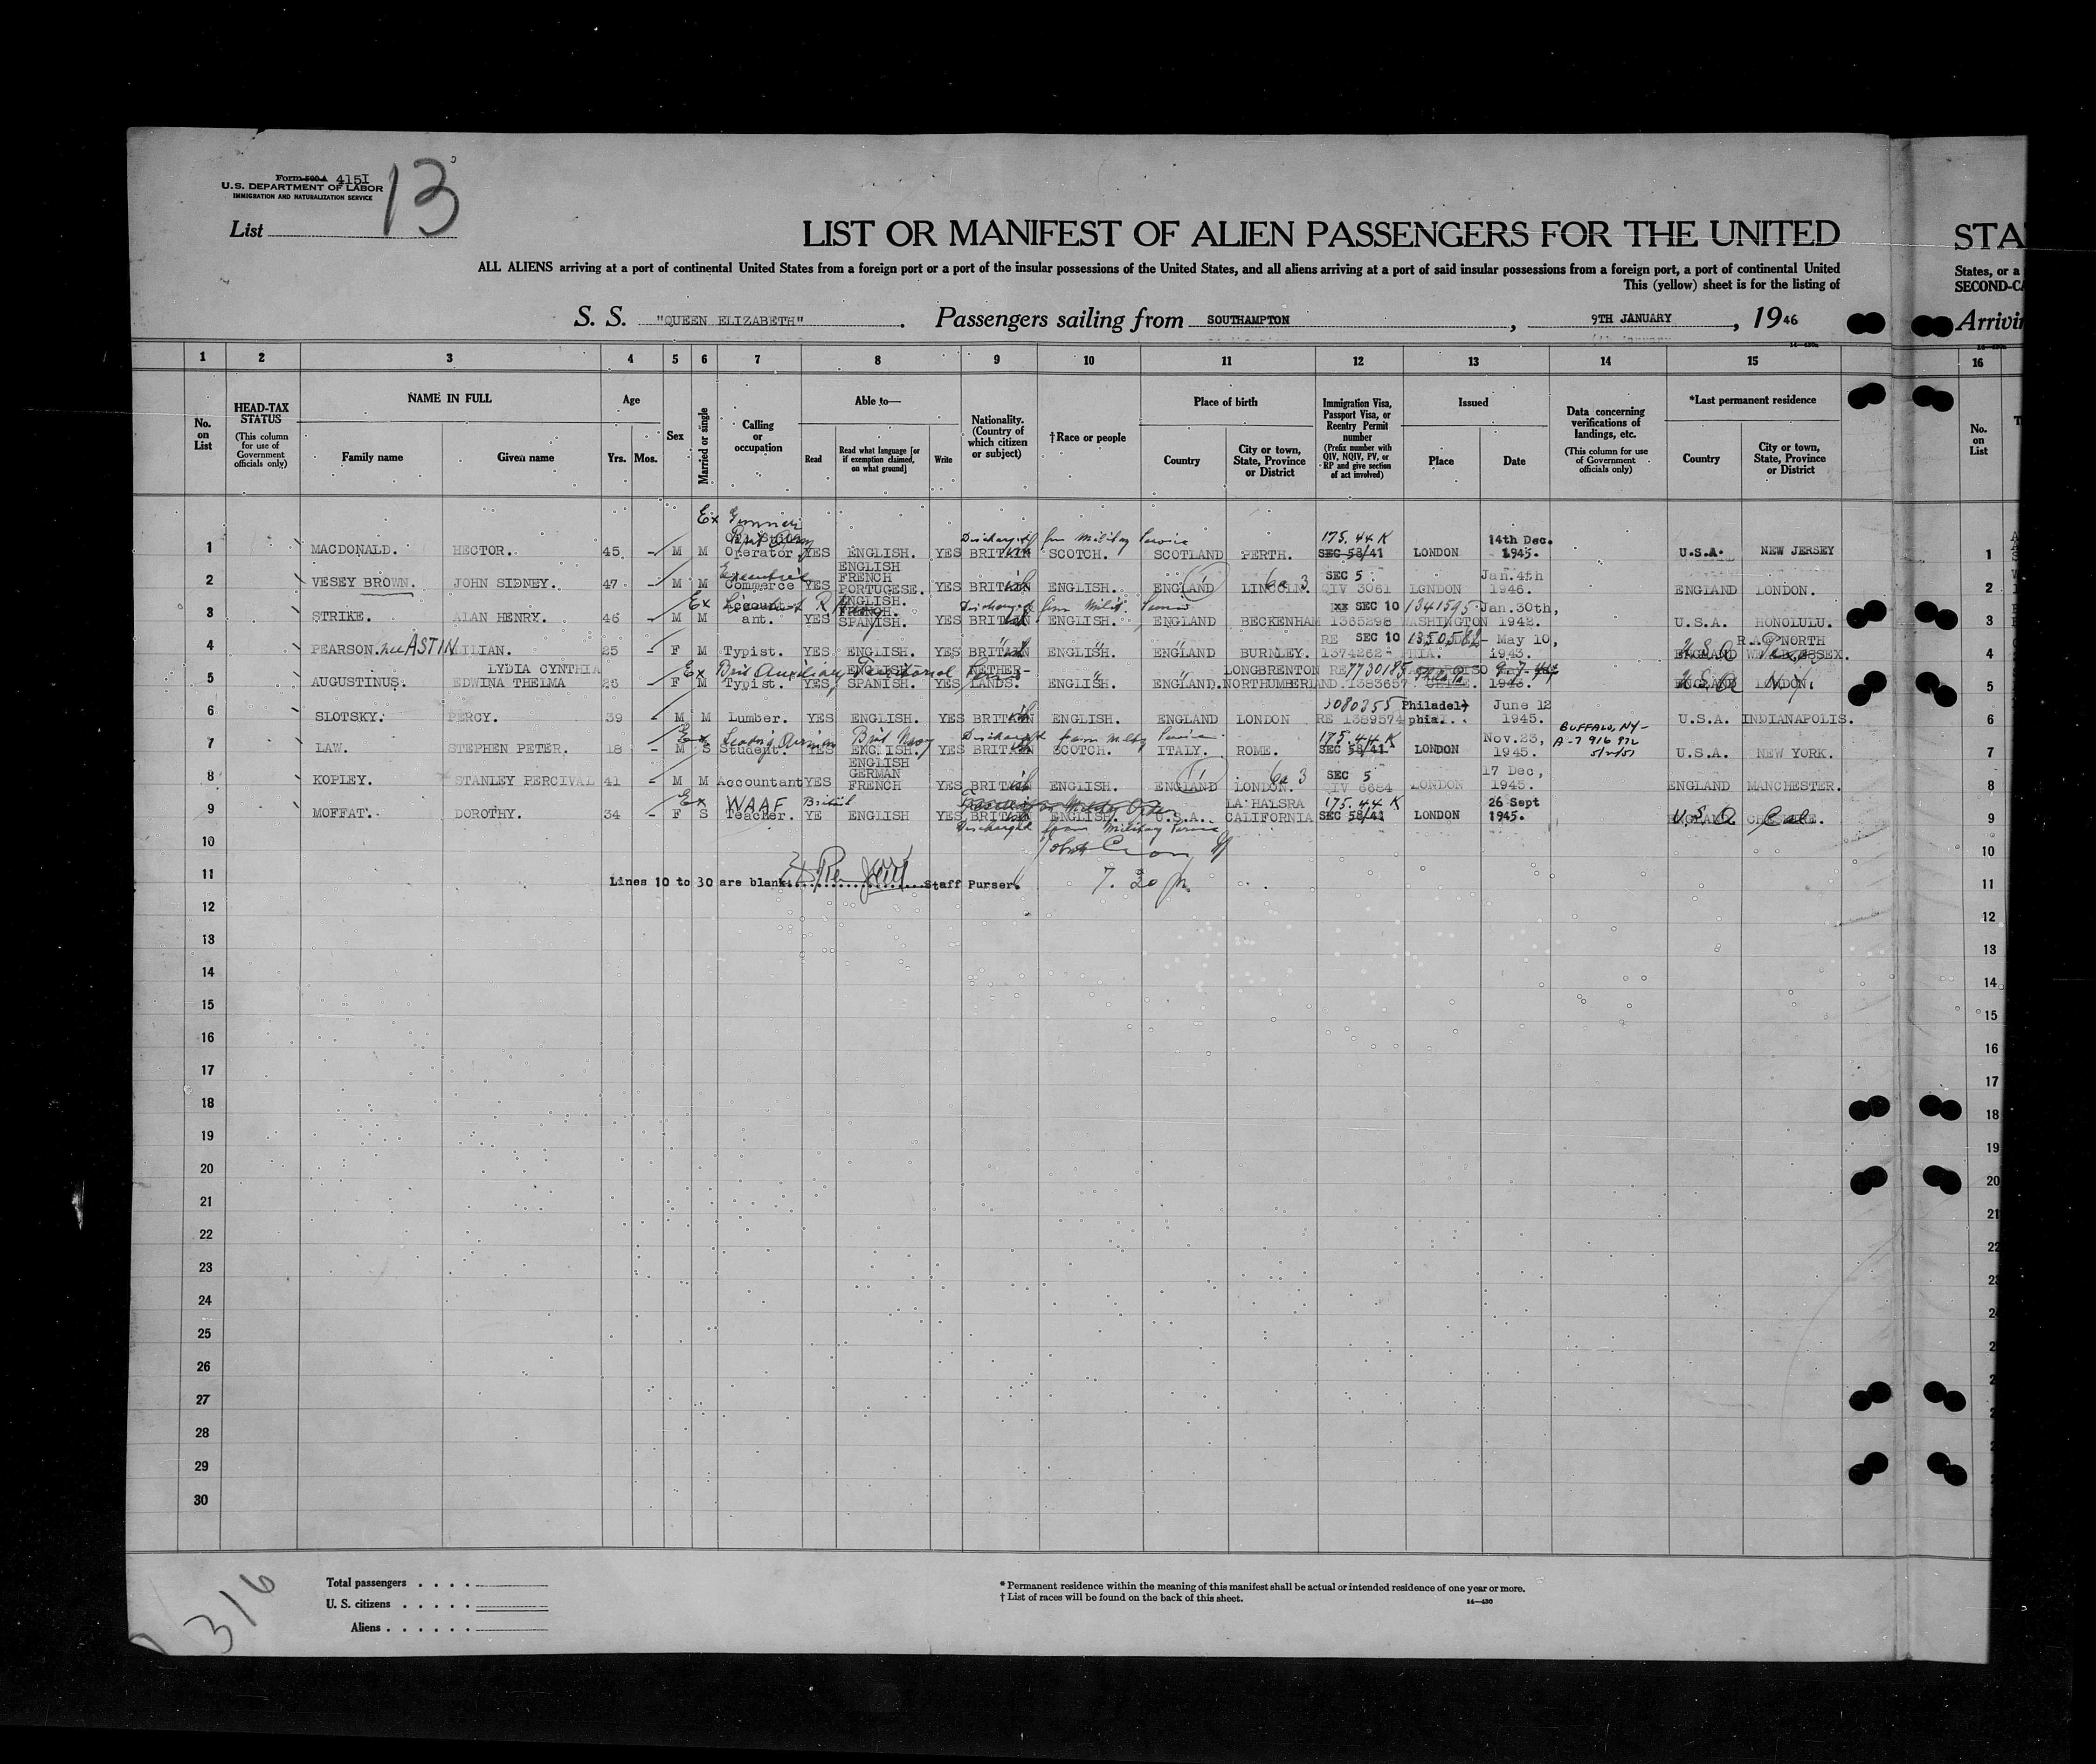 Form 500 A 415I
U.S. DEPARTMENT OF LABOR
IMMIGRATION AND NATURALIZATION SERVICE
13
List
LIST OR MANIFEST OF ALIEN PASSENGERS FOR THE UNITED
STA
ALL ALIENS arriving at a port of continental United States from a foreign port or a port of the insular possessions of the United States, and all aliens arriving at a port of said insular possessions from a foreign port, a port of continental United
States, or a
This (yellow) sheet is for the listing of
SECOND-CA
S. S. "QUEEN ELIZABETH". Passengers sailing from SOUTHAMPTON, 9TH JANUARY, 1946
Arrivin
1 2 3 4 5 6 7 8 9 10 11 12 13 14 15 16
No. on List
HEAD-TAX STATUS (This column for use of Government officials only)
NAME IN FULL
Family name Given name
Age
Yrs. Mos.
Sex
Married or single
Calling or occupation
Able to—
Read
Read what language [or if exemption claimed, on what ground]
Write
Nationality. (Country of which citizen or subject)
†Race or people
Place of birth
Country
City or town, State, Province or District
Immigration Visa, Passport Visa, or Reentry Permit number (Prefix number with QIV, NQIV, PV, or RP and give section of act involved)
Issued
Place Date
Data concerning verifications of landings, etc. (This column for use of Government officials only)
*Last permanent residence
Country
City or town, State, Province or District
No. on List
Ex Gunner
Discharged from Military Service 175.44 K 14th Dec.
1 MACDONALD. HECTOR. 45 - M M Operator YES ENGLISH. YES BRITISH SCOTCH. SCOTLAND PERTH. SEC 58/41 LONDON 1945. U.S.A. NEW JERSEY 1
Executive ENGLISH FRENCH PORTUGESE. SEC 5 Jan.4th
2 VESEY BROWN. JOHN SIDNEY. 47 - M M Commerce YES YES BRITISH ENGLISH. ENGLAND LINCOLN. QIV 3061 LONDON 1946. ENGLAND LONDON. 2
Ex ENGLISH. FRENCH. Discharged from Milit. Service SEC 10 1341595 Jan.30th,
3 STRIKE. ALAN HENRY. 46 - M M Accountant. YES SPANISH. YES BRITISH ENGLISH. ENGLAND BECKENHAM 1365298 WASHINGTON 1942. U.S.A. HONOLULU. 3
RE SEC 10 1350582 May 10, R.A.F. NORTH
4 PEARSON. nee ASTIN LILIAN. 25 - F M Typist. YES ENGLISH. YES BRITISH ENGLISH. ENGLAND BURNLEY. 1374262 PHIA. 1943. U.S.A. 4
LYDIA CYNTHIA Ex Brit Auxiliary Territorial ENGLISH NETHER- LONGBRENTON RE 7730185
5 AUGUSTINUS. EDWINA THELMA 26 - F M Typist. YES SPANISH. YES LANDS. ENGLISH. ENGLAND. NORTHUMBERLAND. 1383657 Phila 1943. U.S.A. N.Y. 5
3080355 Philadel- June 12
6 SLOTSKY. PERCY. 39 - M M Lumber. YES ENGLISH. YES BRITISH ENGLISH. ENGLAND LONDON RE 1389574 phia. 1945. U.S.A. INDIANAPOLIS. 6
Ex Brit Navy Discharged from Milty Service 175.44 K Nov.23, BUFFALO, NY-
7 LAW. STEPHEN PETER. 18 - M S Student. YES ENGLISH. YES BRITISH SCOTCH. ITALY. ROME. SEC 58/41 LONDON 1945. A-7 916 972 U.S.A. NEW YORK. 7
ENGLISH GERMAN FRENCH SEC 5 17 Dec,
8 KOPLEY. STANLEY PERCIVAL 41 - M M Accountant YES YES BRITISH ENGLISH. ENGLAND LONDON. QIV 6684 LONDON 1945. ENGLAND MANCHESTER. 8
Ex WAAF British LA HALSRA 175.44 K 26 Sept
9 MOFFAT. DOROTHY. 34 - F S Teacher. YE ENGLISH YES BRITISH ENGLISH. U.S.A. CALIFORNIA SEC 58/41 LONDON 1945. U.S.A Cal 9
Discharged from Military Service
10 10
11 Lines 10 to 30 are blank. Staff Purser. 7.30 p. 11
12 12
13 13
14 14
15 15
16 16
17 17
18 18
19 19
20 20
21 21
22 22
23
24
25
26
27
28
29
30
316
Total passengers
U. S. citizens
Aliens
* Permanent residence within the meaning of this manifest shall be actual or intended residence of one year or more.
† List of races will be found on the back of this sheet.
14—430